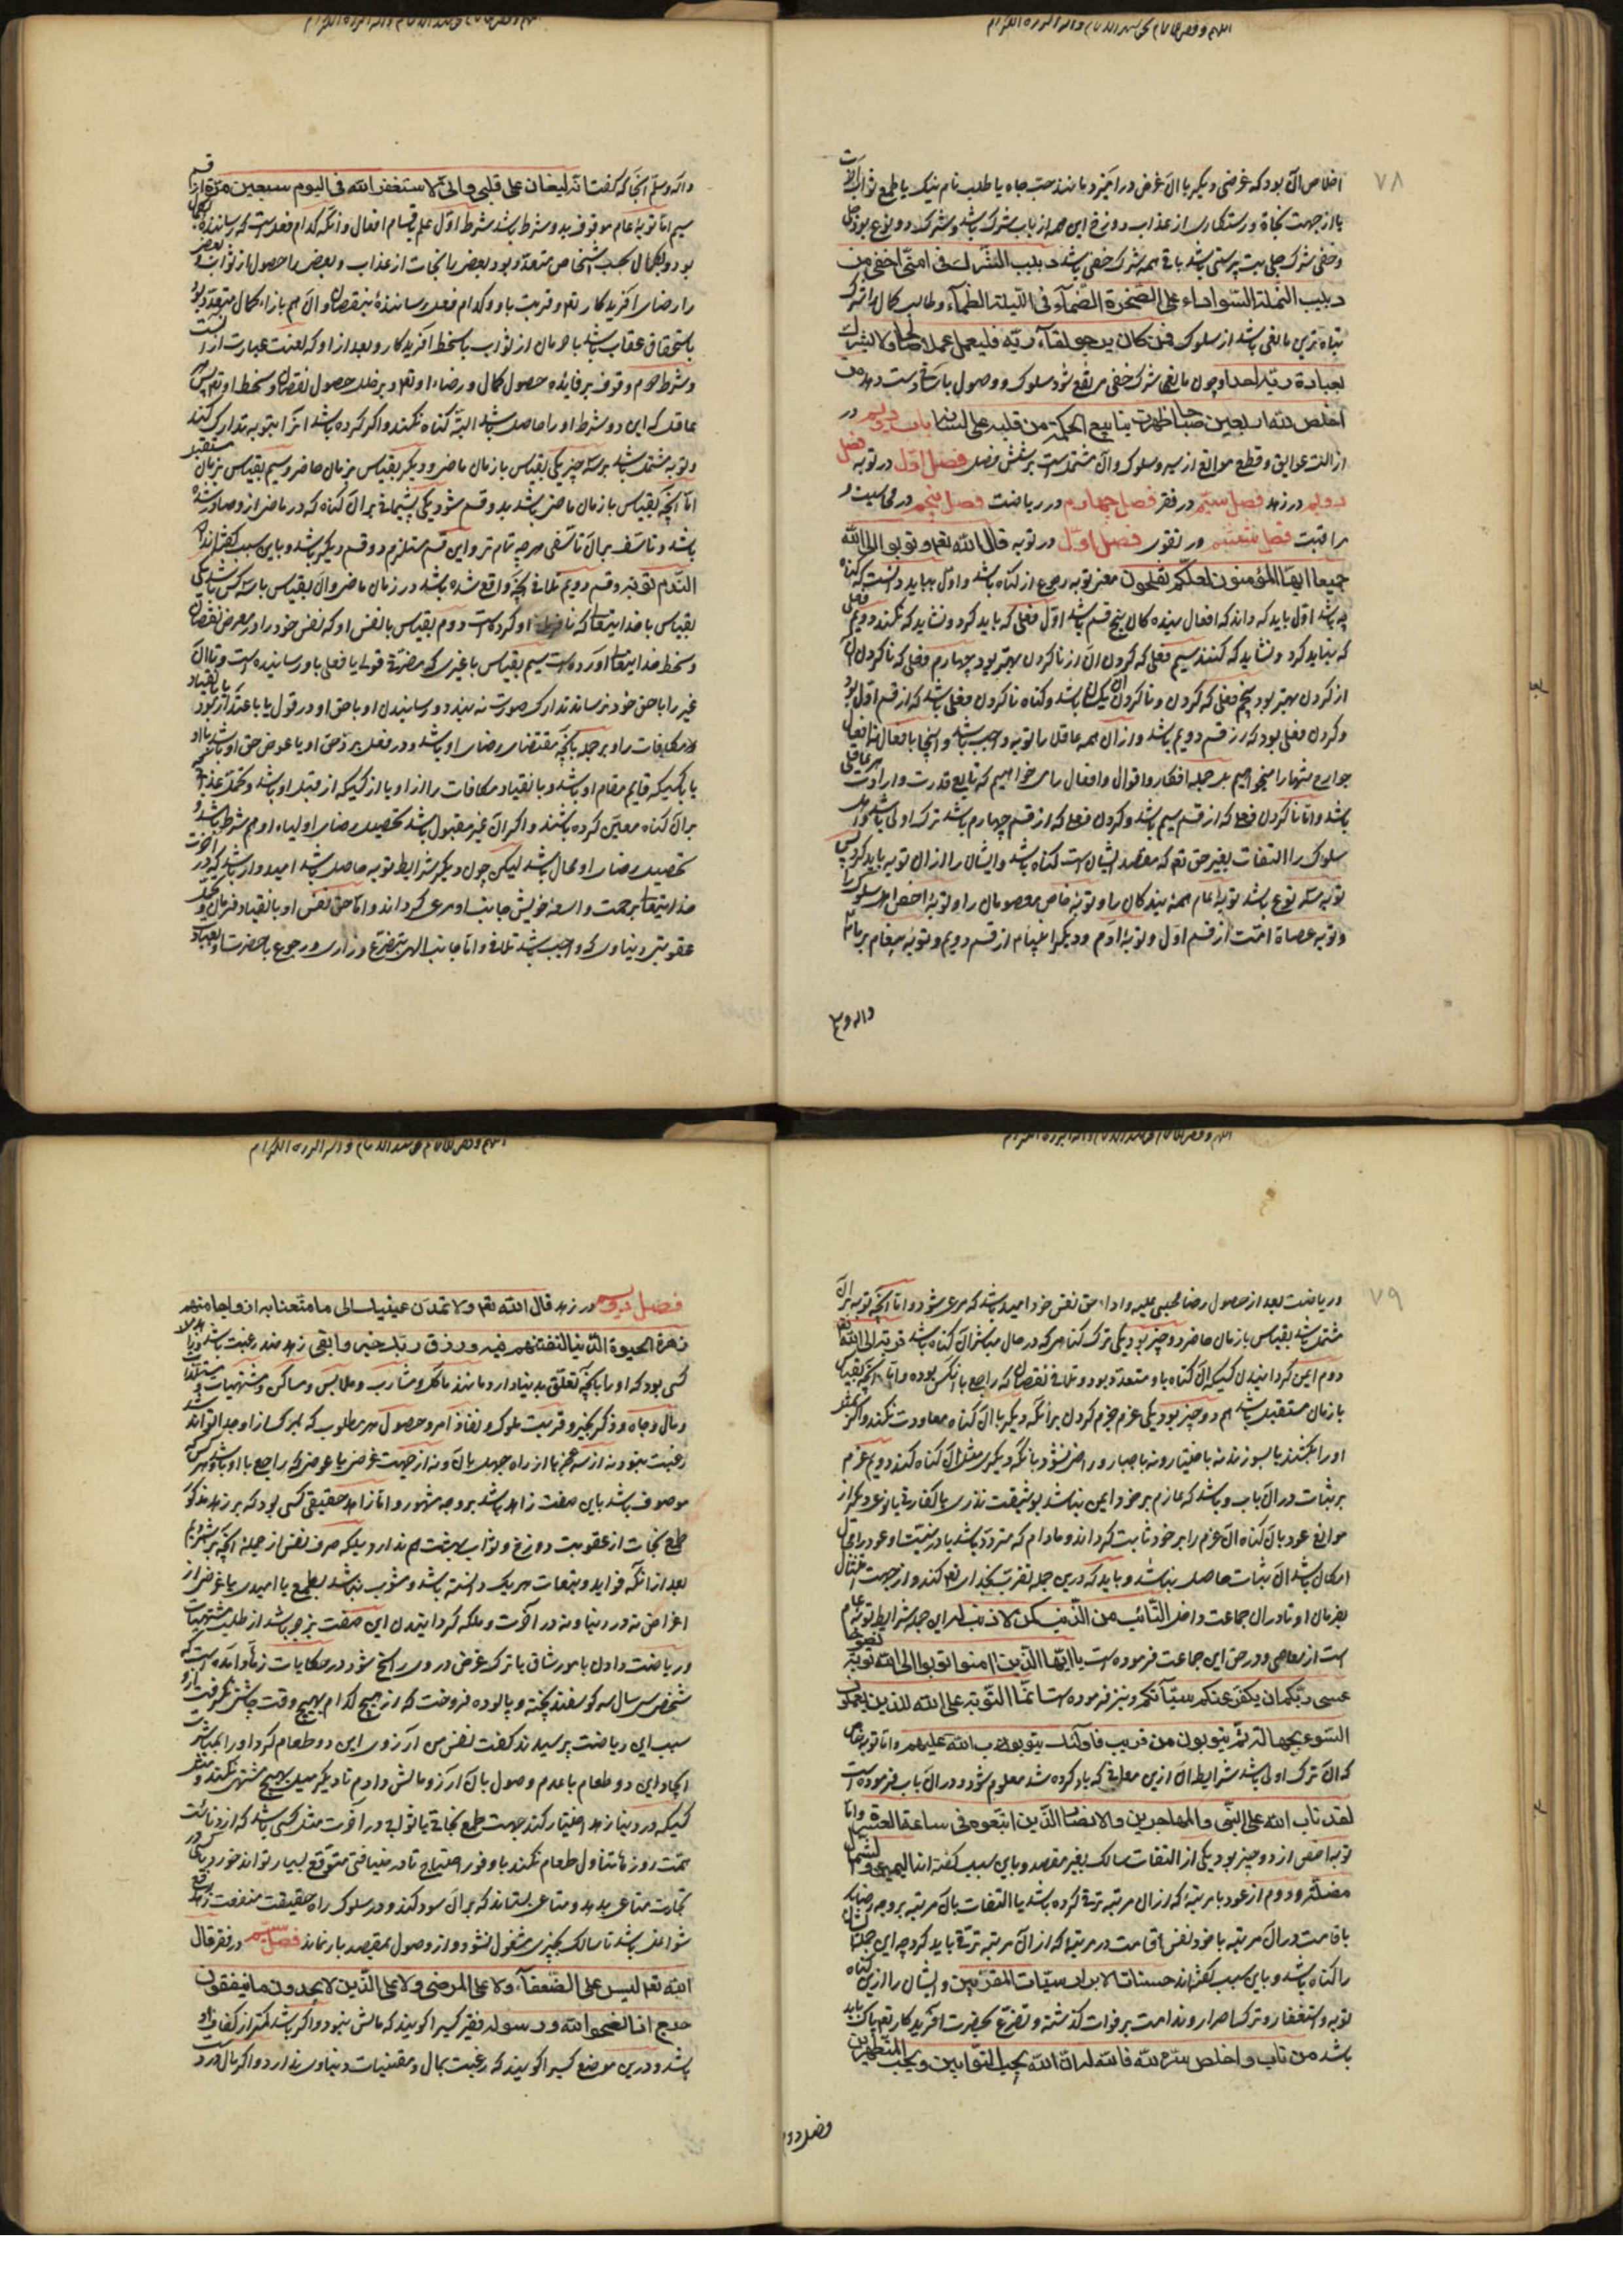 ٧٨
اخلاص آن بود که غرضی دیگر با آن غرض در آمیزد مانند حب جاه یا طلب نام نیک یا طمع ثواب آخرت
یا از جهت نجاة و رستکاری از عذاب دوزخ این همه از باب شرک باشد و شرک دو نوع بود جلی
و خفی شرک جلی بت پرستی باشد باقی همه شرک خفی باشد دبیب الشرك فی امتی اخفی من
دبیب النملة السوداء علی الصخرة الصماء فی اللیلة الظلماء و طالب کمال را شرک
تباه ترین مانعی باشد از سلوک فمن كان یرجو لقاء ربه فلیعمل عملا صالحا ولا یشرك
بعبادة ربه احدا و چون مانع شرک خفی مرتفع شود سلوک و وصول باسانی دست دهد من
اخلص لله اربعین صباحا ظهرت ینابیع الحکمة من قلبه علی لسانه باب دویم در
ازالت عوایق و قطع موانع از سیر و سلوک و آن مشتمل است بر شش فصل فصل اول در توبه فصل
دویم در زهد فصل سیم در فقر فصل چهارم در ریاضت فصل پنجم در محاسبت و
مراقبت فصل ششم در تقوی فصل اول در توبه قال الله تعم وتوبوا الی الله
جمیعا ایها المؤمنون لعلکم تفلحون معنی توبه رجوع از کناه باشد و اول بباید دانست که کناه
چه باشد اول باید که داند که افعال بنده کان پنج قسم باشد اول فعلی که باید کرد و نشاید که نکنند دویم فعلی
که نباید کرد و نشاید که کنند سیم فعلی که کردن آن از ناکردن بهتر بود چهارم فعلی که ناکردن آن
از کردن بهتر بود پنجم فعلی که کردن و ناکردن آن یکسان باشد و کناه ناکردن فعلی باشد که از قسم اول بود
و کردن فعلی بود که از قسم دویم باشد و از آن همه عاقل را توبه واجب باشد و اینجا بافعال نه افعال
جوارح تنها را میخواهیم بل جمله افکار و اقوال و افعال را می خواهیم که تابع قدرت و ارادت هر عاقلی
باشد و اما ناکردن فعلی که از قسم سیم باشد و کردن فعلی که از قسم چهارم باشد ترک اولی باشد و اهل
سلوک را التفات بغیر حق تعم که مقصد ایشان است کناه باشد و ایشان را از آن توبه باید کرد پس
توبه سه نوع باشد توبه عام همه بنده کان را و توبه خاص معصومان را و توبه اخص اهل سلوک را
و توبه عصاة امت از قسم اول و توبه آدم و دیکر انبیا از قسم دویم و توبه پیغام بر ما ص
واله وسلم
واله وسلم آنجا که کفت انه لیغان علی قلبی وانی لاستغفر الله فی الیوم سبعین مرة از قسم
سیم اما توبه عام موقوف بدو شرط باشد شرط اول علم باقسام افعال و آنکه کدام فعل است که رساننده بکمال
بود و کمال بحسب اشخاص متعدد بود بعض را نجات از عذاب و بعض را حصول از ثواب و بعض
را رضای آفریدکار تعم و قربت باو و کدام فعل رساننده بنقصان و آن هم بازاء کمال متعدد بود
یا استحقاق عقاب باشد یا حرمان از ثواب یا سخط آفریدکار و بعد از او که لعنت عبارت از آنست
و شرط دوم وقوف بر فایده حصول کمال و رضاء او تعم و بر خلل حصول نقصان و سخط او تعم پس هر
عاقل که این دو شرط او را حاصل باشد البته کناه نکند و اکر کرده باشد آنرا بتوبه تدارک کند
و توبه مشتمل باشد بر سه چیز یکی بقیاس با زمان ماضی و دیکر بقیاس بزمان حاضر و سیم بقیاس بزمان مستقبل
اما آنچه بقیاس با زمان ماضی باشد بدو قسم شود یکی پشیمانی بر آن کناه که در ماضی ازو صادر شده
باشد و تاسف بر آن تاسفی هر چه تمام تر و این قسم مستلزم دو قسم دیکر باشد و باین سبب کفته اند
الندم توبة و قسم دویم تلافی آنچه واقع شده باشد در زمان ماضی و آن بقیاس با سه کس باشد یکی
بقیاس با خدایتعا که نافرمانی او کرده است دوم بقیاس با نفس او که نفس خود را در معرض نقصان
و سخط خدایتعا آورده است سیم بقیاس با غیری که مضرت قولی یا فعلی باو رسانیده است و تا آن
غیر را با حق خود نرساند تدارک صورت نه بندد و رسانیدن او با حق او در قول یا باعتذار بود یا بانقیاد
مکافات را و بر جمله بآنچه مقتضای رضای او باشد و در فعل برد حق او یا عوض حق او باشد باو
یا بکسیکه قایم مقام او باشد و بانقیاد مکافات را از او یا از کسیکه از قبل او باشد و تحمل عذابی که
بر آن کناه معین کرده باشند و اکر آن غیر مقبول باشد تحصیل رضای اولیاء او هم شرط باشد و
تحصیل رضای او محال باشد لیکن چون دیکر شرایط توبه حاصل باشد امیدوار باشد که در آخرت
خدایتعا برحمت واسعه خویش جانب او مرعی کرداند و اما حق نفس او بانقیاد فرمان و تحمل
عقوبتی دنیاوی که واجب باشد تلافی و اما جانب الهی بتضرع و زاری و رجوع با حضرت او و بعبادت
٧٩
و ریاضت بعد از حصول رضا مجنی علیه و اداء حق نفس خود امید باشد که مرعی شود و اما آنچه توبه بر آن
مشتمل باشد بقیاس با زمان حاضر دو چیز بود یکی ترک کناهی که در حال مباشر آن کناه باشد قربة الی الله تعم
دوم ایمن کردانیدن کسیکه آن کناه باو متعدی بود و تلافی نقصان که راجع باآنکس بوده و اما آنچه بقیاس
بازمان مستقبل باشد هم دو چیز بود یکی عزم جزم کردن برآنکه دیکر باآن کناه معاودت نکند و اکر بمثل
او را بکشند یا بسوزند نه باختیار و نه باجبار و راضی نشود بآنکه دیکری مثل آن کناه کند دویم عزم
بر ثبات در آن باب و باشد که عازم بر خود ایمن نباشد بوثیقت نذری یا کفارتی یا نوعی دیکر از
موانع عود بآن کناه آن عزم را بر خود ثابت کرداند و مادام که متردد باشد یا در نیت او عود را مجال
امکان باشد آن ثبات حاصل نباشد و باید که درین جمله تقرب بخدای تعم کند و از جهت امتثال
بفرمان او تا در آن جماعت داخل التائب من الذنب کمن لا ذنب له این جمله شرایط توبه عام
است از معاصی و در حق این جماعت فرموده است یا ایها الذین امنوا توبوا الی الله توبة نصوحا
عسی ربکم ان یکفر عنکم سیآتکم و نیز فرموده است انما التوبة علی الله للذین یعملون
السوء بجهالة ثم یتوبون من قریب فاولئك یتوب الله علیهم و اما توبه خاص
که آن ترک اولی باشد شرایط آن ازین معانی که یاد کرده شد معلوم شود و در آن باب فرموده است
لقد تاب الله علی النبی والمهاجرین والانصار الذین اتبعوه فی ساعة العسرة و اما
توبه اخص از دو چیز بود یکی از التفات سالک بغیر مقصد و باین سبب کفته اند الیمین والشمال
مضلتان و دوم از عود بامرتبه که از آن مرتبه ترقی کرده باشد یا التفات بآن مرتبه بر وجه رضا بآن
یا اقامت در آن مرتبه یا خود نفس اقامت در مرتبه که از آن مرتبه ترقی باید کرد چه این جمله ایشان
را کناه باشد و باین سبب کفته اند حسنات الابرار سیئات المقربین و ایشان را از این کناه
توبه و استغفار و ترک اصرار و ندامت بر فوات کذشته و تضرع بحضرت آفریدکار تعم پاک باید
باشد من تاب و اخلص سره لله فالله له ان الله یحب التوابین ویحب المتطهرین
فصل دوم
فصل دویم در زهد قال الله تعم ولا تمدن عینیك الی ما متعنا به ازواجا منهم
زهرة الحیوة الدنیا لنفتنهم فیه ورزق ربك خیر وابقی زهد ضد رغبت باشد و زاهد
کسی بود که او را بآنچه تعلق بدنیا دارد مانند مآکل و مشارب و ملابس و مساکن و مشتهیات و مستلذات
و مال و جاه و ذکر بخیر و قربت ملوک و نفاذ امر و حصول هر مطلوب که بمرک از او جدا تواند شد
رغبت نبود نه از سر عجز یا از راه جهل بآن و نه از جهت غرض یا عوضی که راجع با او باشد و هر کس که
موصوف باشد باین صفت زاهد باشد بر وجه مشهور و اما زاهد حقیقی کسی بود که بر زهد مذکور
طمع نجات از عقوبت دوزخ و ثواب بهشت هم ندارد بلکه صرف نفس از جمله آنچه بر شمردیم
بعد از آنکه فواید و تبعات هر یک دانسته باشد و مشوب نباشد بطمع یا امیدی یا غرضی از
اغراض نه در دنیا و نه در آخرت و ملکه کردانیدن این صفت بزجر باشد از طلب مشتهیات
و ریاضت دادن بامور شاق یا ترک غرض در وی راسخ شود در حکایات زهاد آمده است که
شخصی سی سال سر کوسفند پخته و پالوده فروخت که از هیچ کدام بهیچ وقت چاشنی نکرفت از او
سبب این ریاضت پرسیدند کفت نفس من آرزوی این دو طعام کرد او را بمباشرت
اتخاذ این دو طعام با عدم وصول بآن آرزو مالش دادم تا دیکر میل بهیچ مشتهی نکند و مثل
کسیکه در دنیا زهد اختیار کند جهت طمع نجاتی یا ثوابی در آخرت مثل کسی باشد که از دنائت
همت روزها تناول طعام نکند با وفور احتیاج تا در ضیافتی متوقع بسیار تواند خورد یا کسی در
تجارت متاعی بدهد و متاعی بستاند که بر آن سود کند و در سلوک راه حقیقت منفعت زهد رفع
شواغل باشد تا سالک بچیزی مشغول نشود و از وصول بمقصد باز نماند فصل سیم در فقر قال
الله تعم لیس علی الضعفاء ولا علی المرضی ولا علی الذین لا یجدون ما ینفقون
حرج اذا نصحوا لله ورسوله فقیر کسی را کویند که مالش نبود و اکر باشد کمتر از کفاف او
باشد و درین موضع کسی را کویند که رغبت بمال و مقتنیات دنیاوی ندارد و اکر مال بدست آرد